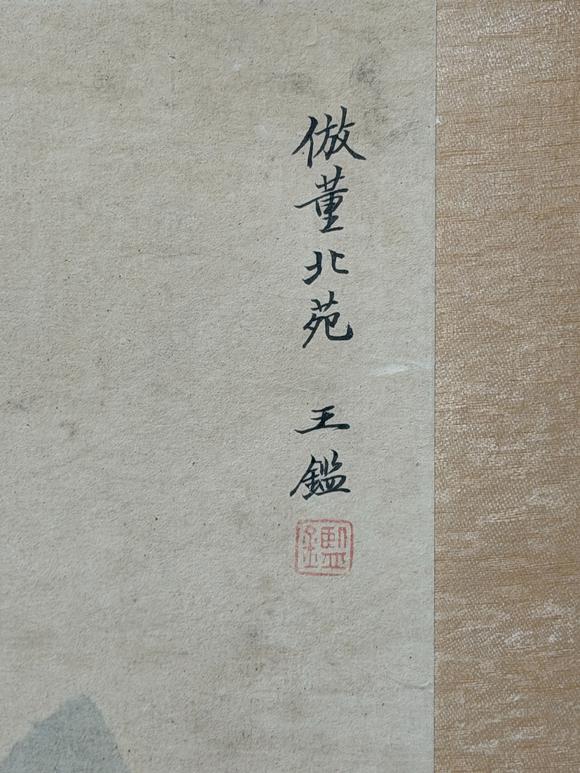 倣董北苑 王鑑
鑑